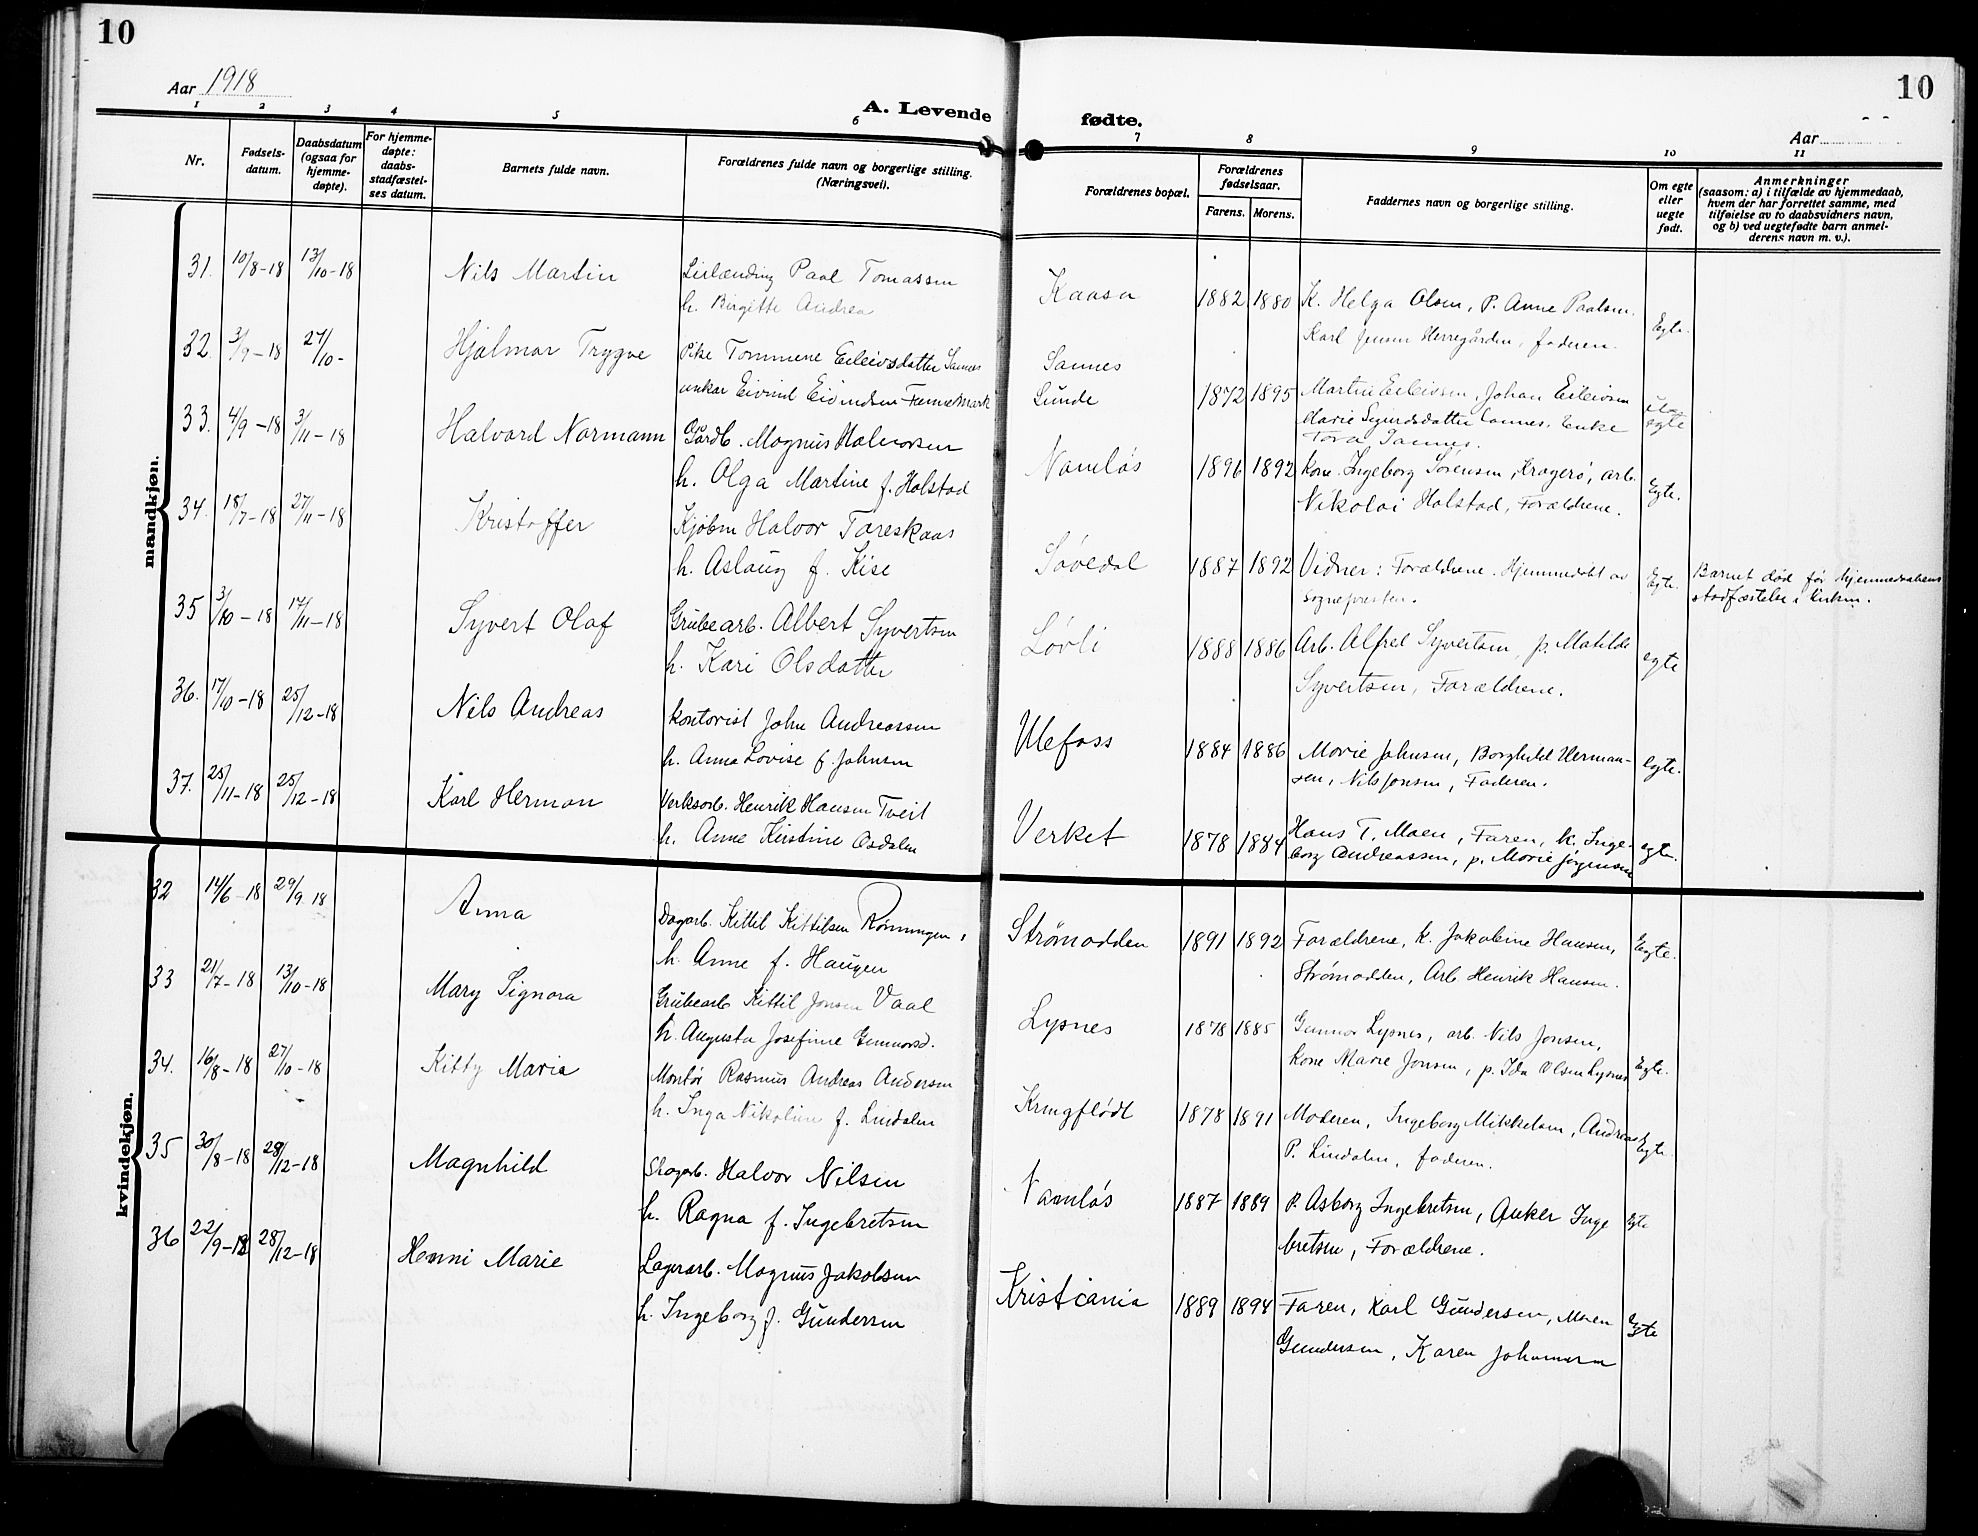 10
10
Aar 1918
A. Levende fødte.
Aar
1 2 3 4 5 6 7 8 9 10 11
Nr.
Fødsels-
datum.
Daabsdatum
(ogsaa for
hjemme-
døpte).
For hjemme-
døpte:
daabs-
stadfæstel-
ses datum.
Barnets fulde navn.
Forældrenes fulde navn og borgerlige stilling.
(Næringsvei).
Forældrenes bopæl.
Forældrenes
fødselsaar.
Farens. Morens.
Faddernes navn og borgerlige stilling.
Om egte
eller
uegte
født.
Anmerkninger
(saasom: a) i tilfælde av hjemmedaab,
hvem der har forrettet samme, med
tilføielse av to daabsvidners navn,
og b) ved uegtefødte barn anmel-
derens navn m. v.).
mandkjøn.
31. 10/8-18 13/10-18 Nils Martin Paal Tomassen Kaasa 1882 1880 K. Helga Olsen, P. Anne Paalsen. Egte.
h. Birgitte Andrea
Karl Jensen Herregården, faderen.
32. 3/9-18 27/10- Hjalmar Trygve Pike Tommine Eileivsdatter Sannes Sannes
unkar Eivind Eivindsen Fennemark Lunde 1872 1895 Martin Eileivsen, Johan Eileivsen
Marie Sannes, Enke
Tora Sannes.
egte
33. 4/9-18 3/11-18 Halvard Normann Gårdb. Magnus Halvorsen Namløs 1896 1892 Kone Ingeborg Sørensen, Kragerø, arb. Egte.
h. Olga Martine f. Holstad
Nikolai Holstad, Forældrene.
34. 18/7-18 27/11-18 Kristoffer Kjøbm Halvor Tareskaas Søvedal 1887 1892 Vidner: Forældrene. Hjemmedøbt av Egte. Barnet død før hjemmedaabens
h. Aslaug f. Kise
sognepresten.
stadfæstelse i kirken.
35 3/10-18 17/11-18 Syvert Olaf Grubearb. Albert Syvertsen Løvli 1888 1886 Arb. Alfred Syvertsen, p. Matilde egte
h. Kari Olsdatter
Syvertsen, Forældrene.
36. 17/10-18 25/12-18 Nils Andreas kontorist John Andreassen Ulefoss 1884 1886 Marie Johnsen, Borghild Herman- egte.
h. Anna Lovise f. Johnsen
sen, Nils Jonsen, Faderen.
37. 25/11-18 25/12-18 Karl Herman Verksarb. Henrik Hansen Tveit Verket 1878 1884 Hans T. Moen, Faren, k. Inge- egte.
h. Anne Kirstine Osdalen
borg Andreassen, p. Marie Jørgensen
kvindekjøn.
32 14/6-18 29/9 18 Anna Dagarb. Kittil Kittilsen Rønningen, Strømodden 1891 1892 Forældrene, k. Jakobine Hansen, Egte.
h. Anne f. Haugen
Strømodden, Arb Henrik Hansen.
33 21/7-18 13/10-18 Mary Signora Grubearb Kittil Jonsen Vaal Lysnes 1878 1885 Gunnar Lysnes, arb. Nils Jonsen,
h. Augusta Josefine Gunnarsd.
Kone Marie Jonsen, p. Ida Olsen Lysnes Egte.
34. 16/8-18 27/10-18 Kitty Maria Montør Rasmus Andreas Andersen Kringflødt 1878 1891 Moderen, Ingeborg Mikkelsen, Andreas Egte.
h. Inga Nikoline f. Lindalen
P. Lindalen, faderen.
35 30/8-18 28/12-18 Magnhild Skogarb. Halvor Nilsen Namløs 1887 1889 P. Asborg Ingebretsen, Anker Inge Egte
h. Ragna f. Ingebretsen
bretsen, Forældrene.
36 22/9-18 28/12-18 Henni Marie Lagerarb. Magnus Jakobsen Kristiania 1889 1894 Faren, Karl Gundersen, Maren Egte
h. Ingeborg f. Gundersen
Gundersen, Karen Johannesen